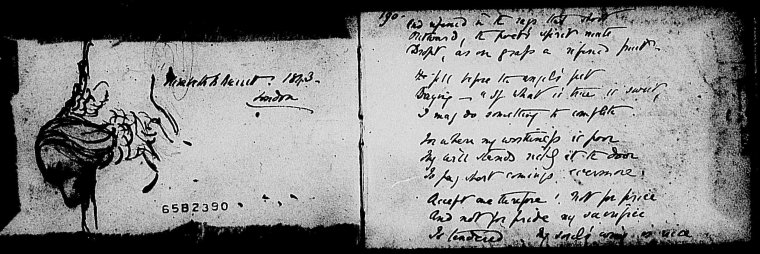 Elizabeth B Barrett. 1843.
London
65B2390
190.
And ripened in the rays that shoot
Outward, the poet's spirit mute
Dropt, as one grasps a ripened fruit.
He fell before the angel's feet
Saying — "If what is true is sweet,
I may do something to complete.
For where my worthiness is poor
My will stands richly at the door
To pay short comings evermore.
Accept me therefore! Not for price
And not for pride my sacrifice
Is tendered My soul's